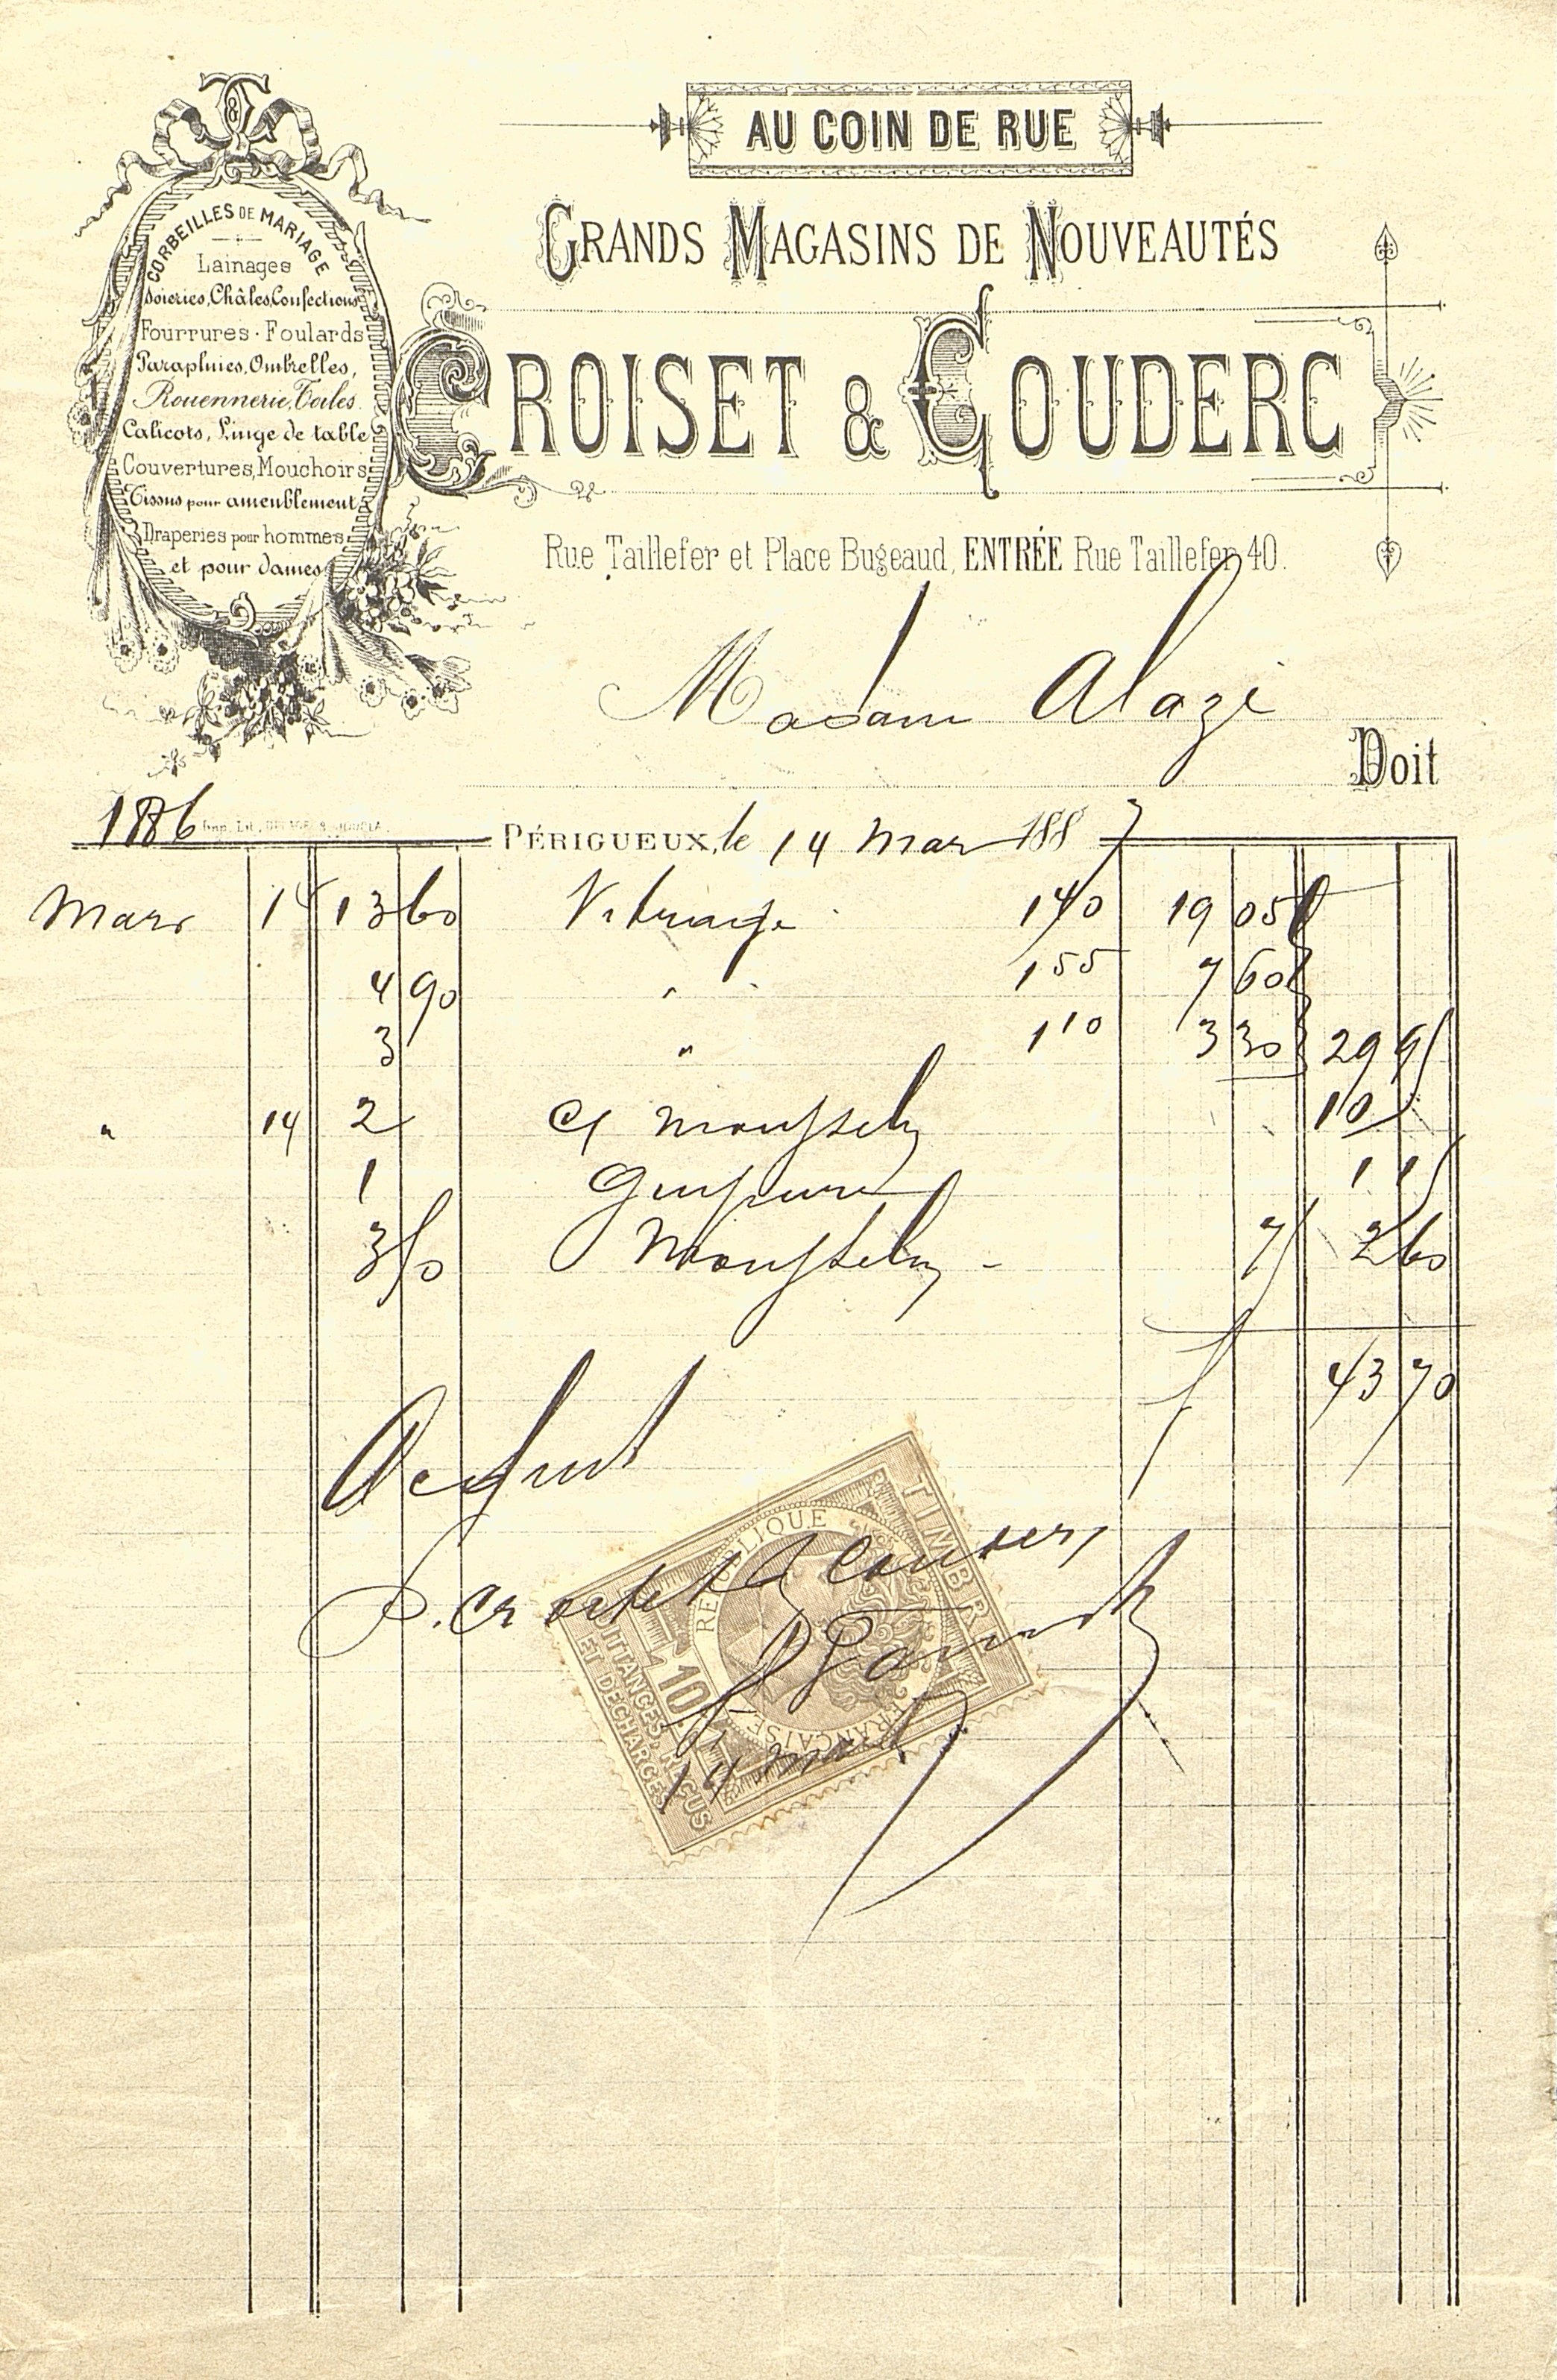 AU COIN DE RUE
GRANDS MAGASINS DE NOUVEAUTÉS
CROISET & COUDERC
Rue Taillefer et Place Bugeaud, ENTRÉE Rue Taillefer, 40.
C & C
CORBEILLES DE MARIAGE
Lainages
Soieries, Châles, Confections
Fourrures - Foulards
Parapluies, Ombrelles,
Rouennerie, Toiles
Calicots, Linge de table
Couvertures, Mouchoirs
Tissus pour ameublement
Draperies pour hommes
et pour dames
Madame Alazi
Doit
1886 Imp. Lit.
PÉRIGUEUX, le 14 Mars 1887
Mars 14 13 60 Vitrage 140 19 05
4 90 " 1 55 7 60
3 " 1 10 3 30 29 95
" 14 2 Mousselin 10
1 Guipure 1 15
3 50 Mousselin - 75 2 60
f 43 70
Acquit
P. Croiset & Couderc
14 mars
TIMBRE
RÉPUBLIQUE FRANÇAISE
10
QUITTANCES, REÇUS
ET DÉCHARGES